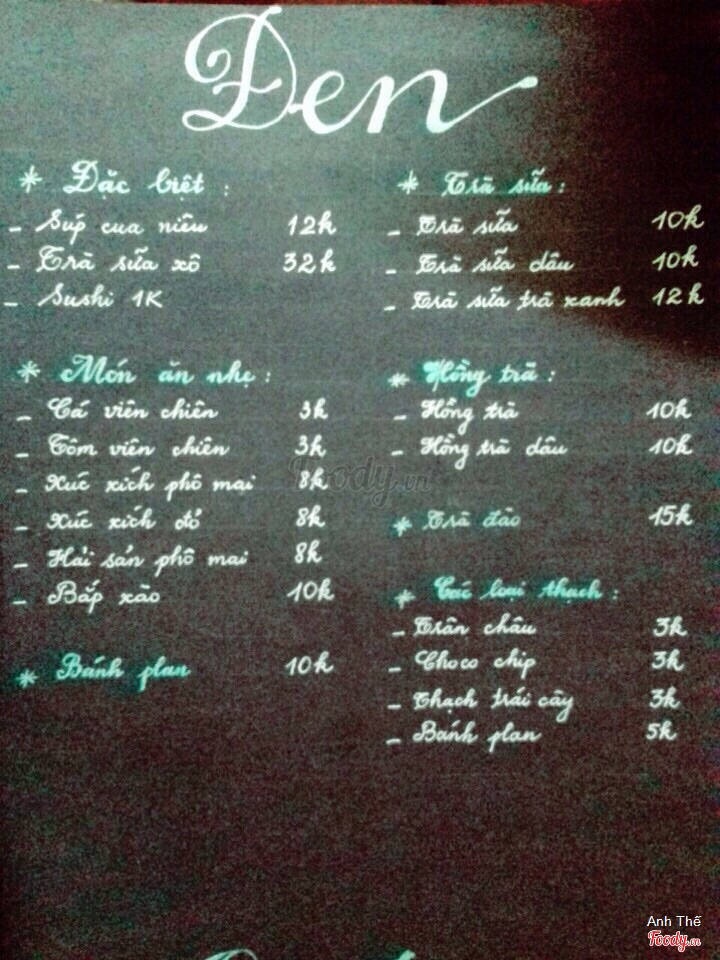 Đen
* Đặc biệt :
- Súp cua niêu 12k
- Trà sữa xô 32k
- Sushi 1K
* Món ăn nhẹ :
- Cá viên chiên 3k
- Tôm viên chiên 3k
- Xúc xích phô mai 8k
- Xúc xích đỏ 8k
- Hải sản phô mai 8k
- Bắp xào 10k
* Bánh plan 10k
* Trà sữa :
- Trà sữa 10k
- Trà sữa dâu 10k
- Trà sữa trà xanh 12k
* Hồng trà :
- Hồng trà 10k
- Hồng trà dâu 10k
* Trà đào 15k
* Các loại thạch :
- Trân châu 3k
- Choco chip 3k
- Thạch trái cây 3k
- Bánh plan 5k
Foody.vn
Anh Thế
Foody.vn